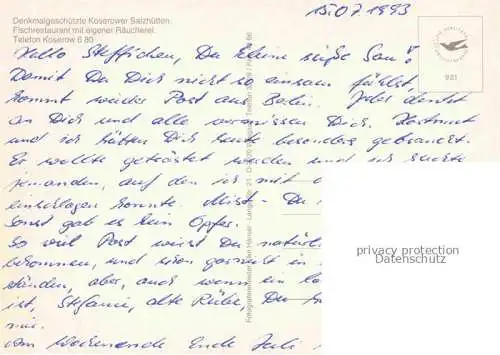 Denkmalgeschützte Koserower Salzhütten.
Fischrestaurant mit eigener Räucherei.
Telefon Koserow 6 80
15.07.1993
Hallo Steffichen, Du kleine süße Sau!
Damit Du Dich nicht so einsam fühlst,
kommt wieder Post aus Berlin. Jeder denkt
an Dich und alle vermissen Dich. Hartmut
und ich hätten Dich heute besonders gebraucht.
Er wollte getröstet werden und ich suchte
jemanden, auf den ich mit
einschlagen konnte. Mist - Du
Sonst gab es kein Opfer.
So viel Post wirst Du natürl
bekommen, und schon garnicht in
ständen, aber, auch wenn ein
ist, Stefanie, alte Rübe, Du
nie.
Am Wochenende Ende Juli
921
privacy protection
Datenschutz